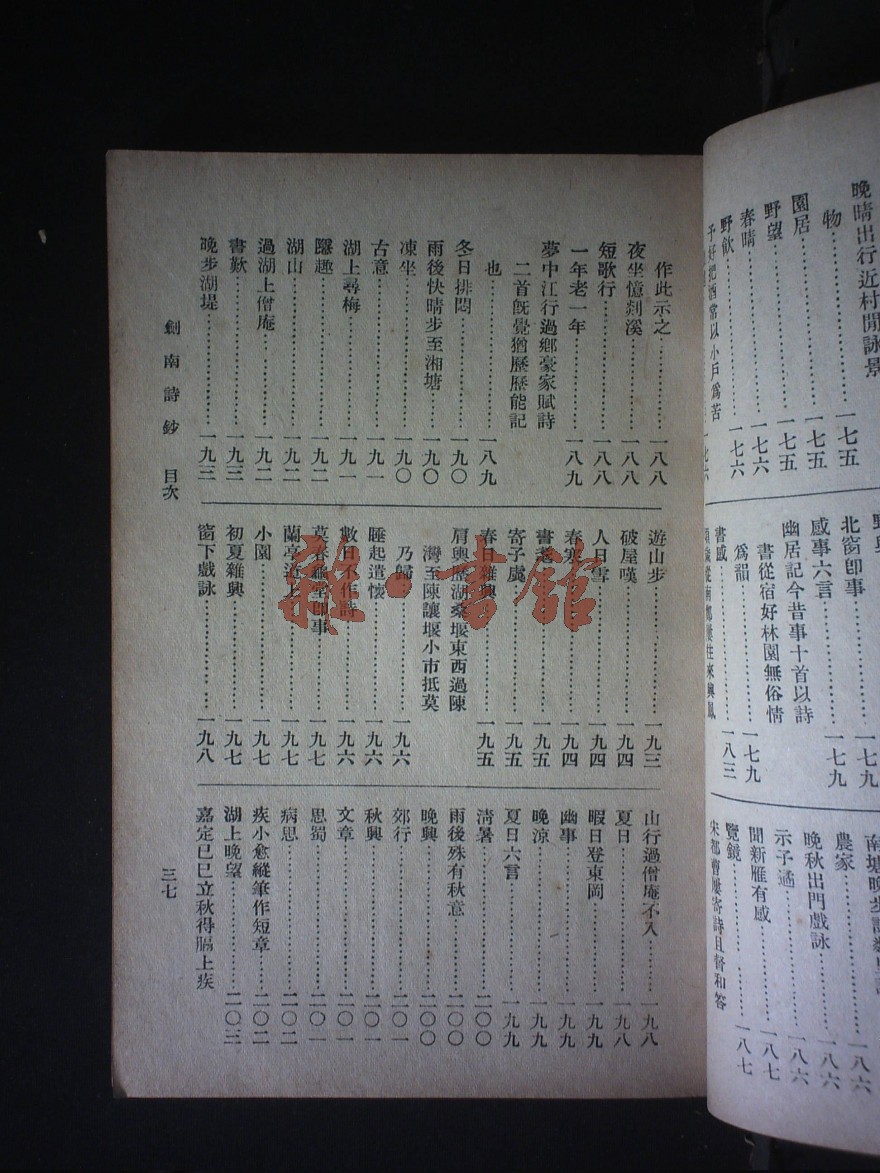 晚晴出行近村閒詠景
物……一七五
園居……一七五
野望……一七五
春晴……一七六
野飲……一七六
予好把酒常以小戶爲苦
北窗卽事……一七九
感事六言……一七九
幽居記今昔事十首以詩
書從宿好林園無俗情
爲韻……一七九
書感……一八三
農家……一八六
晚秋出門戲詠……一八六
示子遹……一八六
聞新雁有感……一八七
覽鏡……一八七
宋都曹屢寄詩且督和答
作此示之……一八八
夜坐憶剡溪……一八八
短歌行……一八八
一年老一年……一八九
夢中江行過鄉豪家賦詩
二首旣覺猶歷歷能記
也……一八九
冬日排悶……一九〇
雨後快晴步至湘塘……一九〇
凍坐……一九〇
古意……一九一
湖上尋梅……一九一
隱趣……一九二
湖山……一九二
過湖上僧庵……一九二
書歎……一九三
晚步湖堤……一九三
遊山步……一九三
破屋嘆……一九四
人日雪……一九四
春寒……一九四
書耄……一九五
寄子虡……一九五
春日雜興……一九五
肩輿歷湖桑堰東西過陳
灣至陳讓堰小市抵莫
乃歸……一九六
睡起遣懷……一九六
數日不作詩……一九六
莫春龜堂卽事……一九七
蘭亭道上……一九七
小園……一九七
初夏雜興……一九七
窗下戲詠……一九八
山行過僧庵不入……一九八
夏日……一九八
暇日登東岡……一九九
幽事……一九九
晚涼……一九九
夏日六言……一九九
淸暑……二〇〇
雨後殊有秋意……二〇〇
晚興……二〇〇
郊行……二〇一
秋興……二〇一
文章……二〇一
思蜀……二〇一
病思……二〇二
疾小愈縱筆作短章……二〇二
湖上晚望……二〇三
嘉定己巳立秋得膈上疾
劍南詩鈔 目次
三七
雜·書館